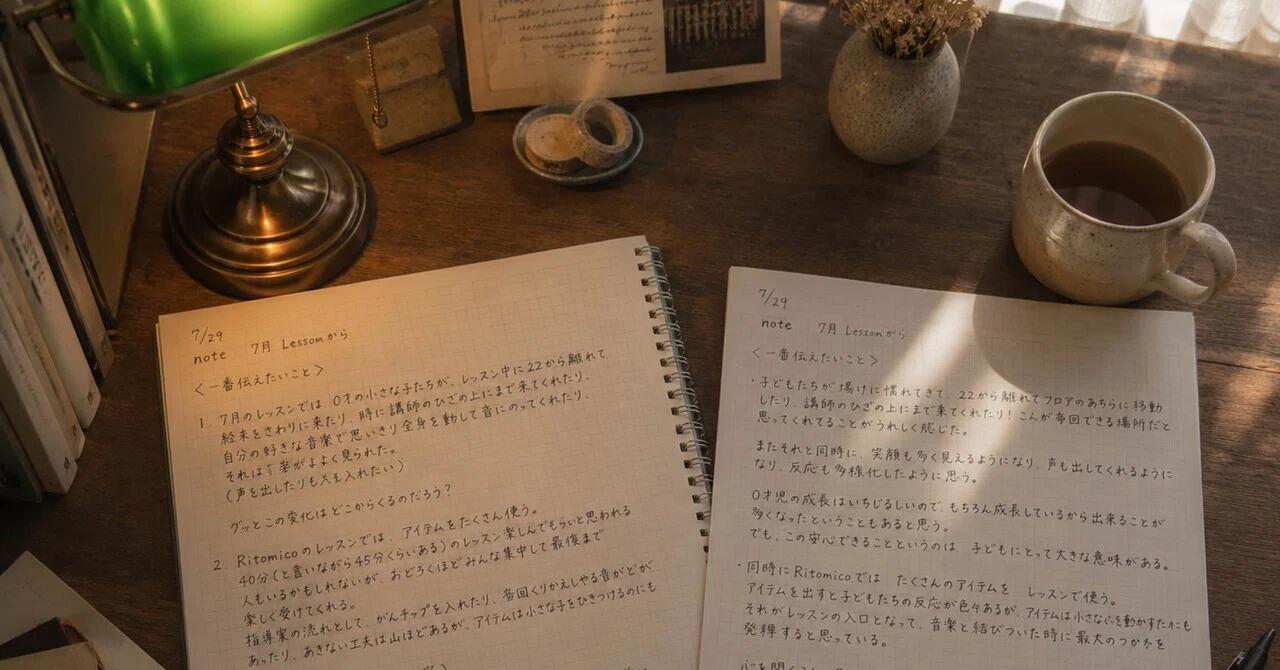 7/29
note 7月 Lessomから
<一番伝えたいこと>
1. 7月のレッスンでは、0才の小さな子たちが、レッスン中に22から離れて
絵末をさわりに来たり、時に講師のひざの上にまで来てくれたり、
自分の好きな音楽で思いきり全身を動して音にのってくれたり、
それは よく見られた。
(声を出したりも 入れたい)
グッとこの変化はどこからくるのだろう?
2. Ritomicoのレッスンでは、アイテムをたくさん使う。
40分(と言いながら45分くらいある)のレッスン楽しんでもらいと思われる
人もいるかもしれないが、おどろくほどみんな集中して最後まで
楽しく受けてくれる。
指導案の流れとして、がんチップを入れたり、毎回くりかえしやる音がどが
あったり、あきない工夫は山ほどあるが、アイテムは小さな子をひきつけるのにも
7/29
note 7月 Lessomから
<一番伝えたいこと>
・子どもたちが 場けに慣れてきて、22から離れてフロアのあちらに移動
したり、講師のひざの上にまで来てくれたり!こんが毎回できる場所だと
思ってくれてることがうれしく感じた。
またそれと同時に、笑顔も多く見えるようになり、声も出してくれるように
なり、反応も多様化したように思う。
0才児の成長はいちじるしいので、もちろん成長しているから出来ることが
多くなったということもあると思う。
でも、この安心できることというのは 子どもにとって大きな意味がある。
・同時にRitomicoでは たくさんのアイテムを レッスンで使う。
アイテムを出すと子どもたちの反応が色々あるが、アイテムは小さな心を動かすたにも
それがレッスンの入口となって、音楽と結びついた時に最大のつかみを
発揮すると思っている。
心を開く